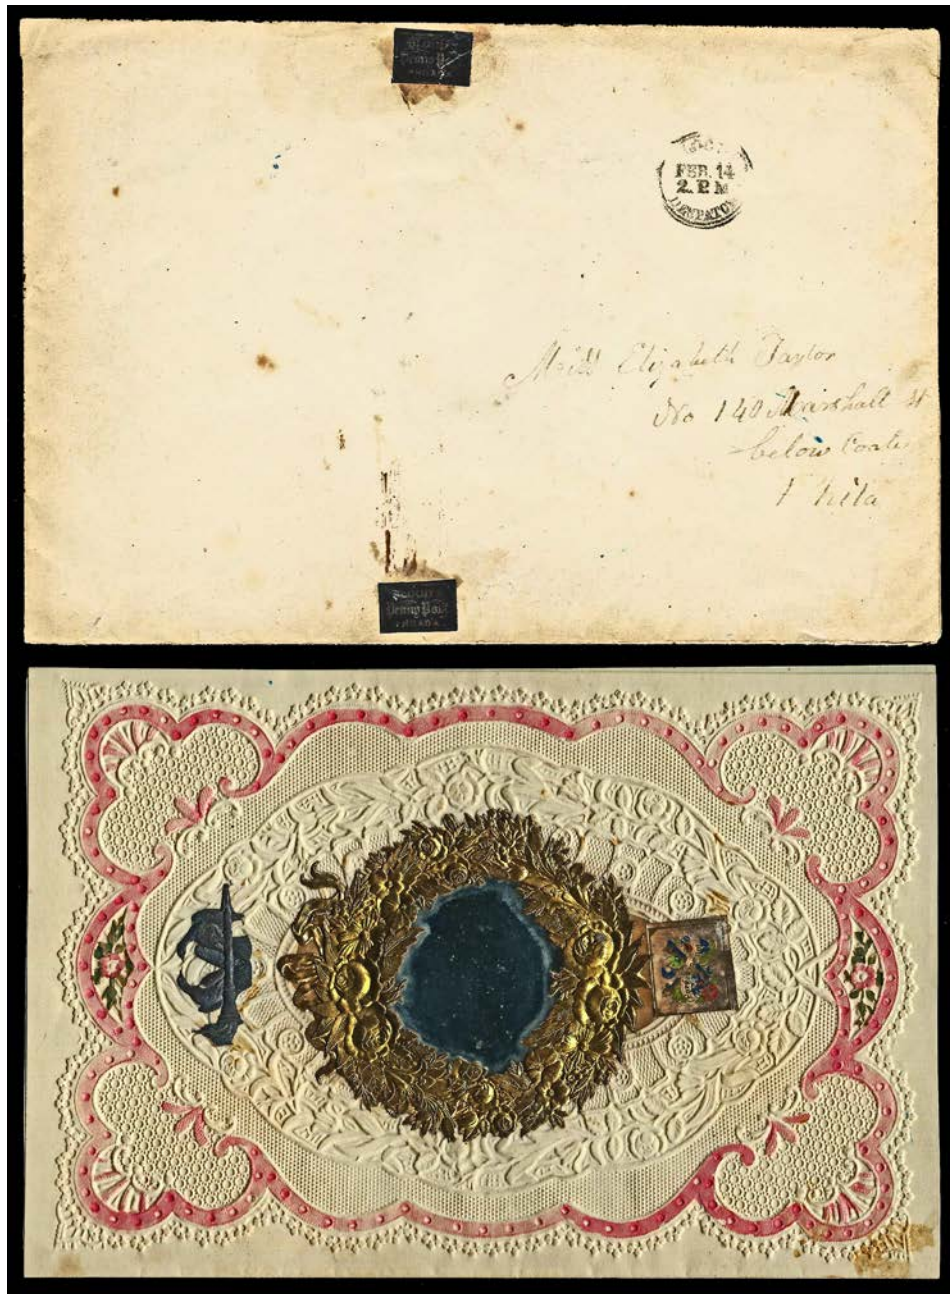 Penny Post
FEB. 14
2. P. M
DESPATCH
Miss Elizabeth Taylor
No 140 Marshall St
below Coates
Phila
BLOOD'S
Penny Post
PHILADA